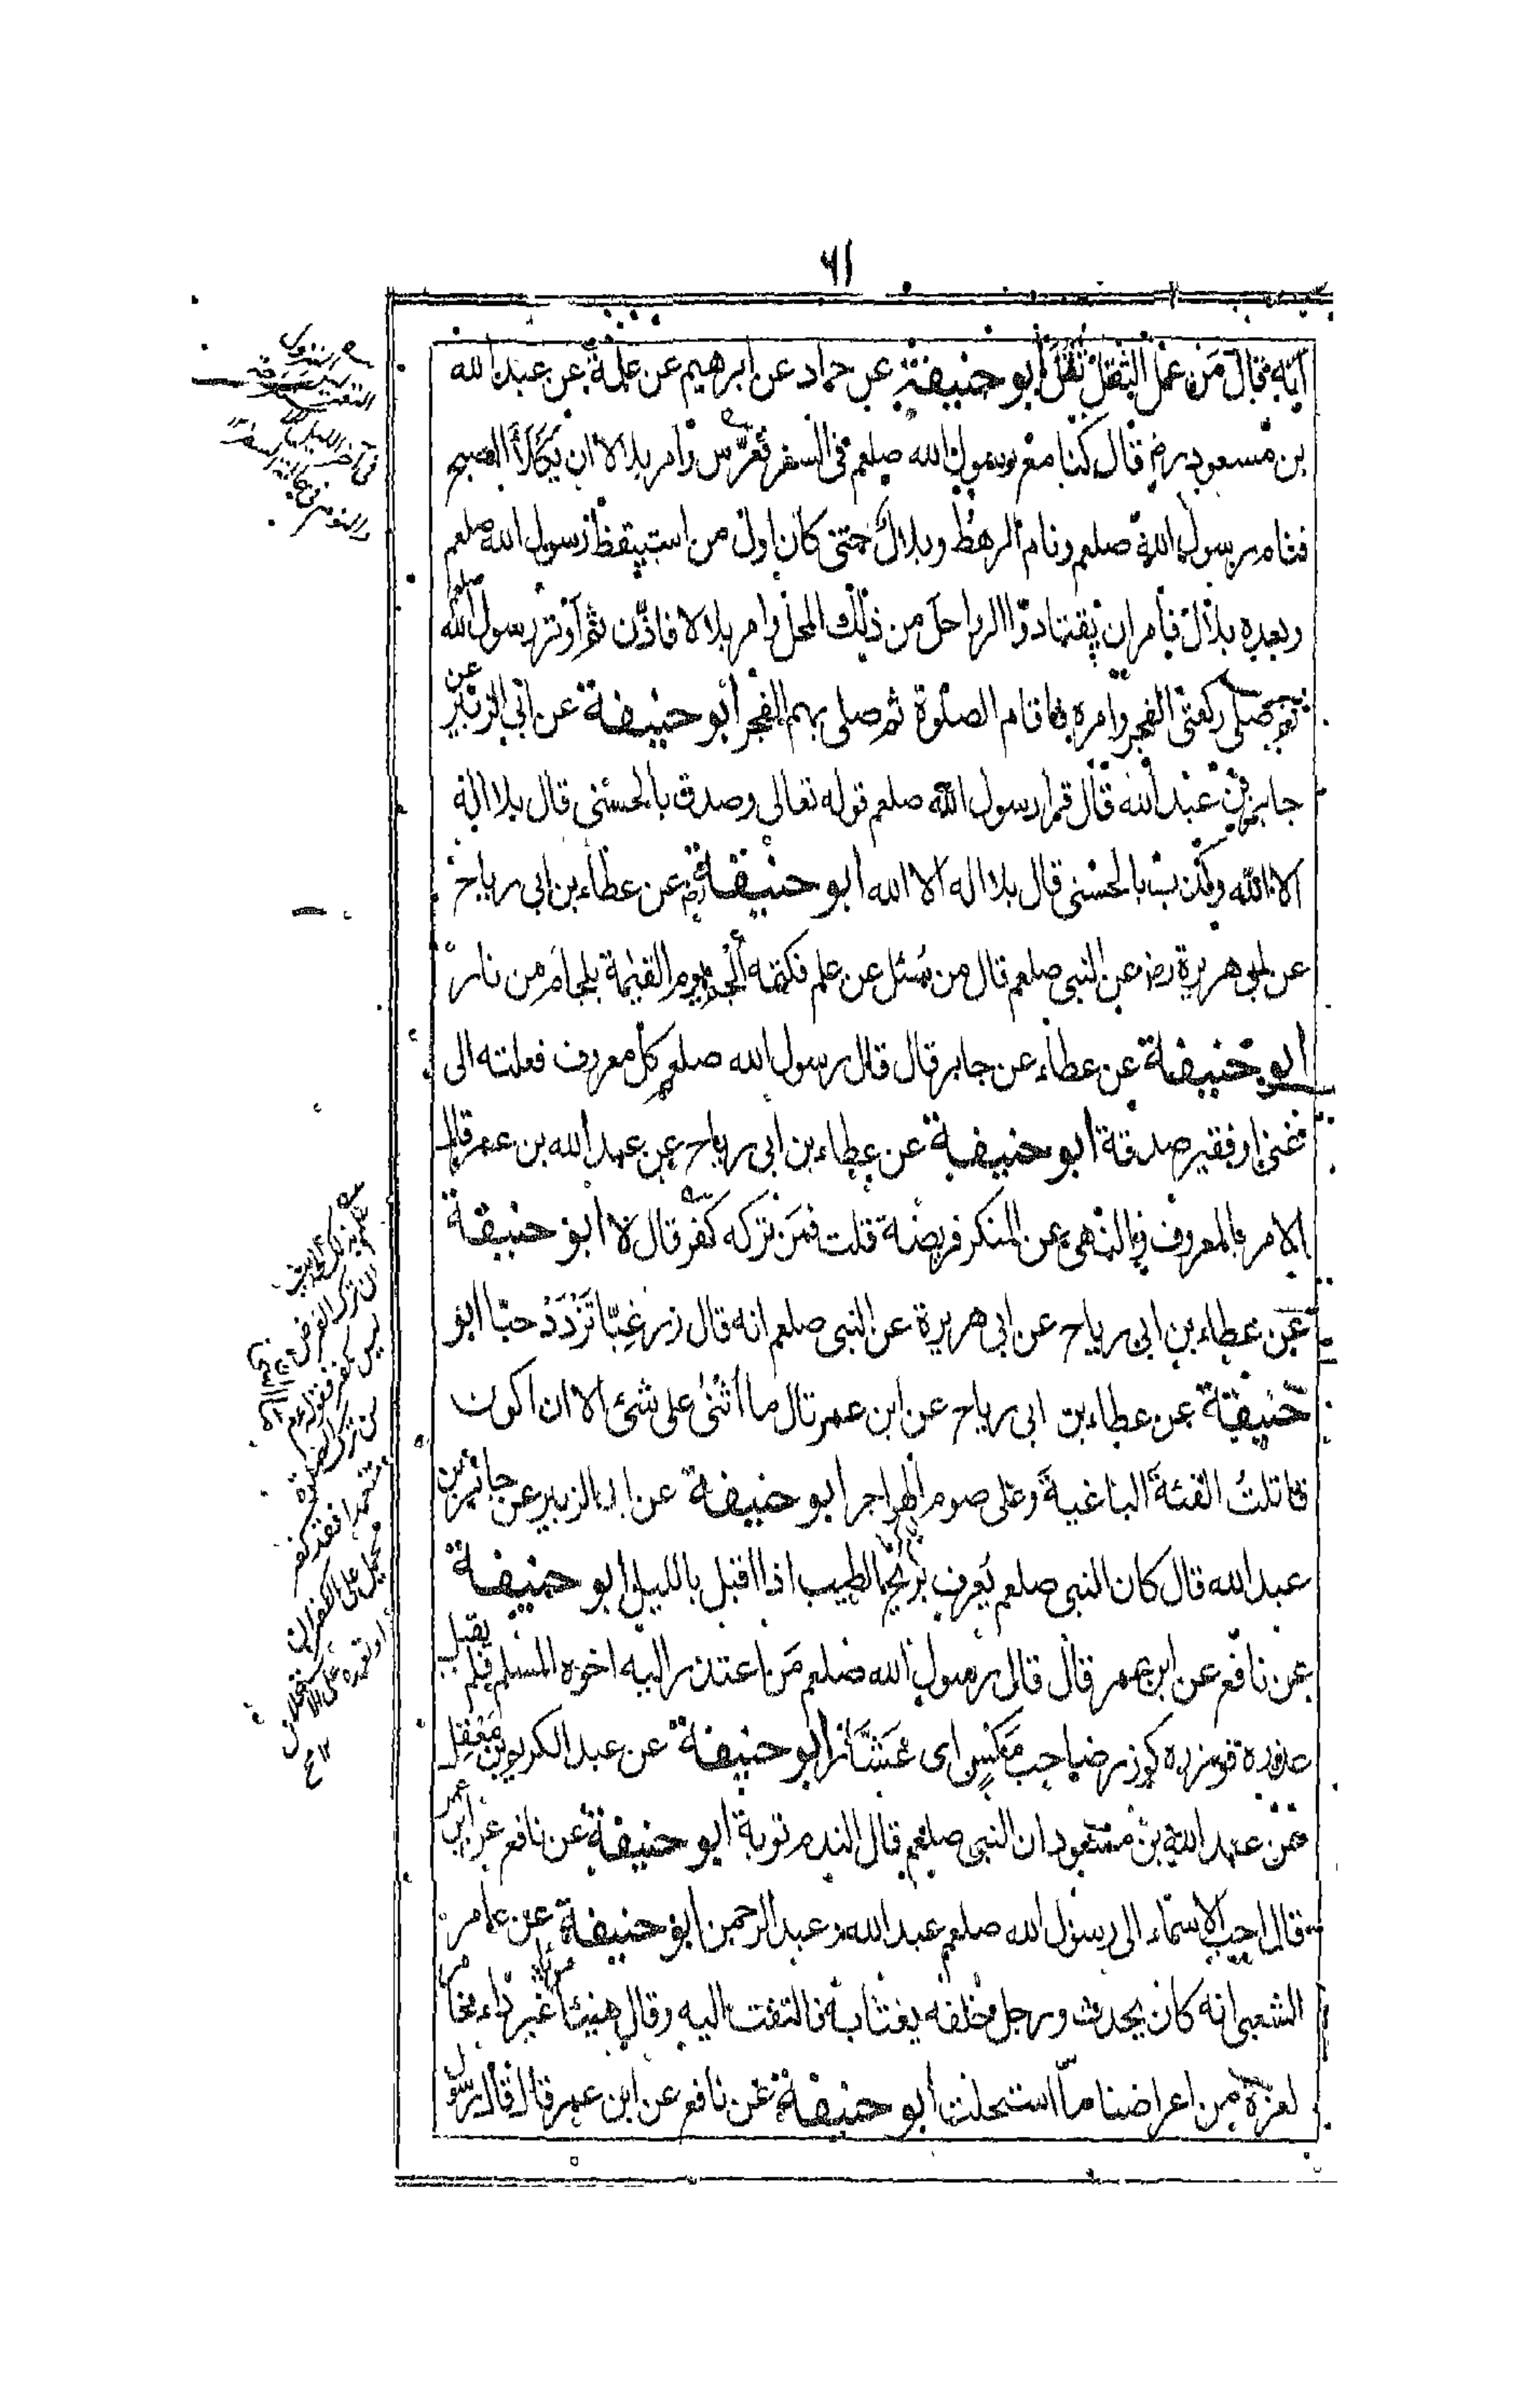 ٦١
فقال من عمل الثقل ثقل أبو حنيفة عن حماد عن ابرهيم عن علقمة عن عبد الله
بن مسعود رض قال كنا مع رسول الله صلعم فى السفر فعرّس وامر بلالا ان يكلأ الصبح
فنام رسول الله صلعم ونام الرهط وبلال حتى كان اول من استيقظ رسول الله صلعم
وبعده بلال فأمر ان يقتادوا الرواحل من ذلك المحل وامر بلالا فاذّن ثم اوتر رسول الله صلعم
ثم صلى ركعتى الفجر وامره فاقام الصلوة ثم صلى بهم الفجر أبو حنيفة عن ابى الزبير عن
جابر بن عبد الله قال قرأ رسول الله صلعم قوله تعالى وصدق بالحسنى قال بلا اله
الا الله وكذب بالحسنى قال بلا اله الا الله أبو حنيفة رض عن عطاء بن ابى رباح
عن ابى هريرة رض عن النبى صلعم قال من سئل عن علم فكتمه ألجم يوم القيٰمة بلجام من نار
أبو حنيفة عن عطاء عن جابر قال قال رسول الله صلعم كل معروف فعلته الى
غنى او فقير صدقة أبو حنيفة عن عطاء بن ابى رباح عن عبد الله بن عمر قال
الامر بالمعروف والنهى عن المنكر فريضة قلت فمن تركه كفر قال لا أبو حنيفة
عن عطاء بن ابى رباح عن ابى هريرة عن النبى صلعم انه قال زر غِبّا تَزْدَدْ حبّا ابو
حنيفة عن عطاء بن ابى رباح عن ابن عمر قال ما على شئ الا ان اكون
قاتلتُ الفئةَ الباغيةَ وعلى صوم الهواجر أبو حنيفة عن ابى الزبير عن جابر بن
عبد الله قال كان النبى صلعم يُعرف بريح الطيب اذا اقبل بالليل أبو حنيفة
عن نافع عن ابن عمر قال قال رسول الله صلعم مَن اعتذر اليه اخوه المسلم فلم يقبل
عذره فوزره كوزر صاحب مَكس اى عَشّار أبو حنيفة عن عبد الكريم بن مَعْقِل
عن عبد الله بن مسعود ان النبى صلعم قال الندم توبة أبو حنيفة عن نافع عن ابن عمر
قال احب الاسماء الى رسول الله صلعم عبد الله وعبد الرحمن أبو حنيفة عن عامر
الشعبى انه كان يحدث ورجل خلفه يغتابه فالتفت اليه وقال هنيئا مريئا غير داء مخامر
لعزة من اعراضنا ما استحلت أبو حنيفة عن نافع عن ابن عمر قال قال رسول
فى آخر الليل
ان ترك الفرض
ليس كفر
متعمدا فقد كفر